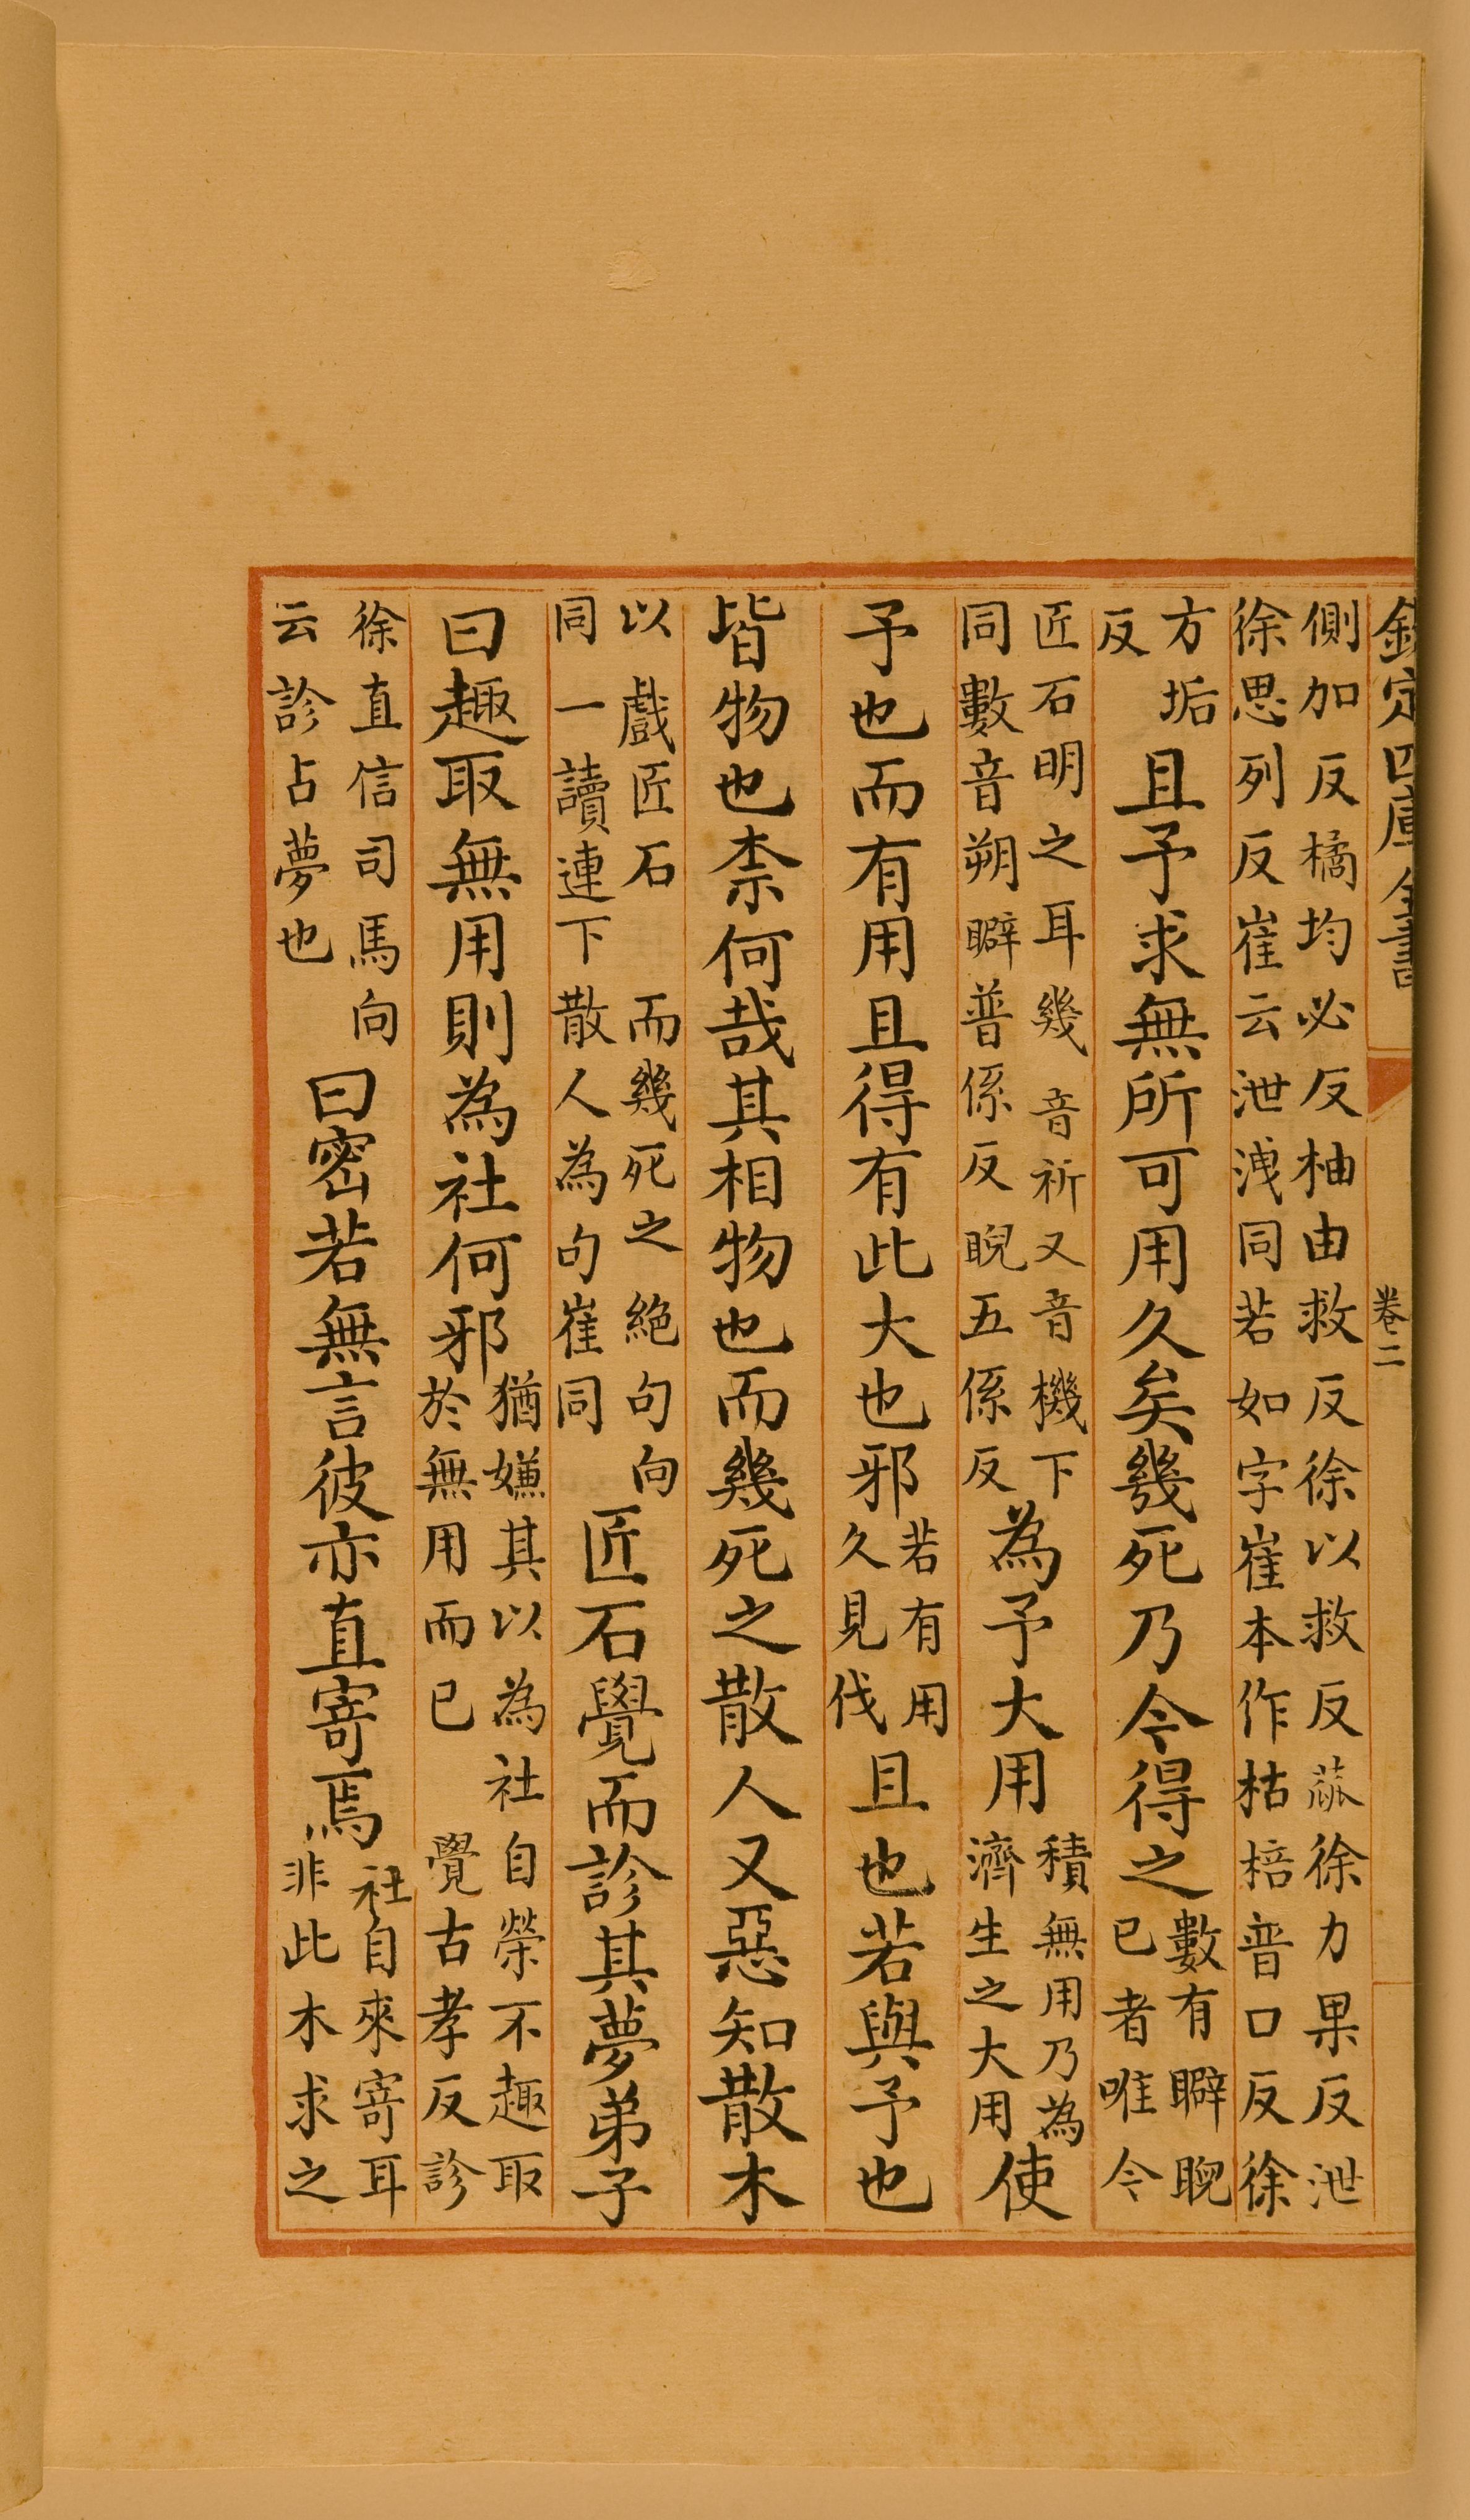 欽定四庫全書
卷二
側加反橘均必反柚由救反徐以救反蓏徐力果反泄
徐思列反崔云泄洩同若如字崔本作枯棓普口反徐
方垢
反
且予求無所可用久矣幾死乃今得之
數有瞬睨
已者唯今
匠石明之耳幾音祈又音機下
同數音朔瞬普係反睨五係反
為予大用
積無用乃為
濟生之大用
使
予也而有用且得有此大也邪
若有用
久見伐
且也若與予也
皆物也柰何哉其相物也而幾死之散人又惡知散木
以戲匠石而幾死之絶句向
同一讀連下散人為句崔同
匠石覺而診其夢弟子
曰趣取無用則為社何邪
猶嫌其以為社自榮不趣取
於無用而已覺古孝反診
徐直信司馬向
云診占夢也
曰密若無言彼亦直寄焉
社自來寄耳
非此木求之